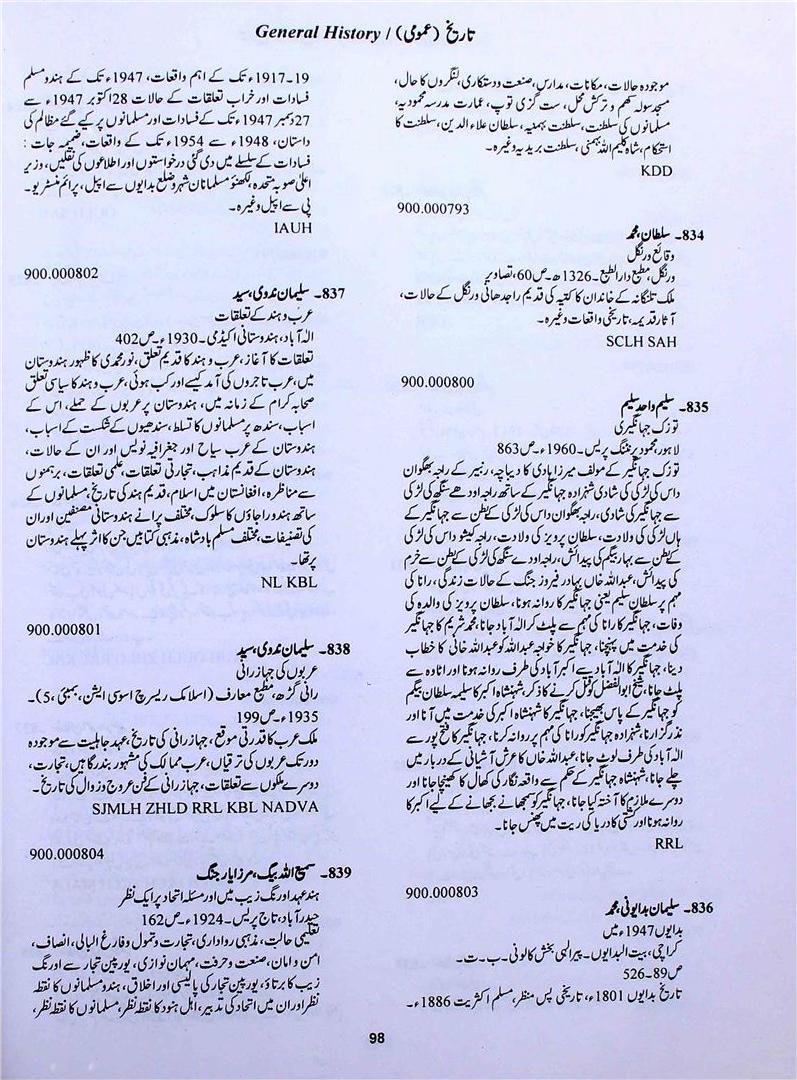 تاریخ (عمومی) / General History
موجودہ حالات، مکانات، مدارس، صنعت و دستکاری، لنگروں کا حال،
مسجد سولہ کھم و ترکش محل، ست گزی توپ، عمارت مدرسہ محمودیہ،
مسلمانوں کی سلطنت، سلطنت بہمنیہ، سلطان علاءالدین، سلطنت کا
استحکام، شاہ کلیم اللہ بہمنی، سلطنت بریدیہ وغیرہ۔
KDD
900.000793
834۔ سلطان، محمد
وقائع ورنگل
ورنگل، مطبع دارالطبع۔ 1326ھ۔ ص60، تصاویر
ملک تلنگانہ کے خاندان کاکتیہ کی قدیم راجدھانی ورنگل کے حالات،
آثار قدیمہ، تاریخی واقعات وغیرہ۔
SCLH SAH
900.000800
835۔ سلیم واحد سلیم
توزک جہانگیری
لاہور، محمود پرنٹنگ پریس۔ 1960ء۔ ص863
توزک جہانگیر کے مولف میرزا ہادی کا دیباچہ، رنبیر کے راجہ بھگوان
داس کی لڑکی کی شادی شہزادہ جہانگیر کے ساتھ راجہ اودھے سنگھ کی لڑکی
سے جہانگیر کی شادی، راجہ بھگوان داس کی لڑکی کے بطن سے جہانگیر کے
ہاں لڑکی کی ولادت، سلطان پرویز کی ولادت، راجہ کیشو داس کی لڑکی
کے بطن سے بہار بیگم کی پیدائش، راجہ اودے سنگھ کی لڑکی کے بطن سے خرم
کی پیدائش، عبداللہ خاں بہادر فیروز جنگ کے حالات زندگی، رانا کی
مہم پر سلطان سلیم یعنی جہانگیر کا روانہ ہونا، سلطان پرویز کی والدہ کی
وفات، جہانگیر کا رانا کی مہم سے پلٹ کر الہ آباد جانا، محمد شریم کا جہانگیر
کی خدمت میں پہنچنا، جہانگیر کا خواجہ عبداللہ کو عبداللہ خانی کا خطاب
دینا، جہانگیر کا الہ آباد سے اکبرآباد کی طرف روانہ ہونا اور اٹاوہ سے
پلٹ جانا، شیخ ابوالفضل کو قتل کرنے کا ذکر، شہنشاہ اکبر کا سلیمہ سلطان بیگم
کو جہانگیر کے پاس بھیجنا، جہانگیر کا شہنشاہ اکبر کی خدمت میں آنا اور
نذر گزارنا، شہزادہ جہانگیر کو رانا کی مہم پر روانہ کرنا، جہانگیر کا فتح پور سے
الہ آباد کی طرف لوٹ جانا، عبداللہ خاں کا عرش آشیانی کے دربار میں
چلے جانا، شہنشاہ جہانگیر کے حکم سے واقعہ نگار کی کھال کا کھینچا جانا اور
دوسرے ملازم کا آختہ کیا جانا، جہانگیر کو سمجھانے بجھانے کے لیے اکبر کا
روانہ ہونا اور کشتی کا دریا کی ریت میں پھنس جانا۔
RRL
900.000803
836۔ سلیمان بدایونی، محمد
بدایوں 1947ء میں
کراچی، بیت البدایوں۔ پیر الٰہی بخش کالونی۔ ب۔ ت۔
ص89-526
تاریخ بدایوں 1801ء، تاریخی پس منظر، مسلم اکثریت 1886ء۔
19۔1917ء تک کے اہم واقعات، 1947ء تک کے ہندو مسلم
فسادات اور خراب تعلقات کے حالات 28 اکتوبر 1947ء سے
27 دسمبر 1947ء تک کے فسادات اور مسلمانوں پر کیے گئے مظالم کی
داستان، 1948ء سے 1954ء تک کے واقعات، ضمیمہ جات :
فسادات کے سلسلے میں دی گئی درخواستوں اور اطلاعوں کی نقلیں، وزیر
اعلیٰ صوبہ متحدہ، لکھنؤ مسلمانان شہر و ضلع بدایوں سے اپیل، پرائم منسٹر یو۔
پی سے اپیل وغیرہ۔
IAUH
900.000802
837۔ سلیمان ندوی، سید
عرب و ہند کے تعلقات
الہ آباد، ہندوستانی اکیڈمی۔ 1930ء۔ ص402
تعلقات کا آغاز، عرب و ہند کا قدیم تعلق، نور محمدی کا ظہور ہندوستان
میں، عرب تاجروں کی آمد کیسے اور کب ہوئی، عرب و ہند کا سیاسی تعلق
صحابہ کرام کے زمانہ میں، ہندوستان پر عربوں کے حملے، اس کے
اسباب، سندھ پر مسلمانوں کا تسلط، سندھیوں کے شکست کے اسباب،
ہندوستان کے عرب سیاح اور جغرافیہ نویس اور ان کے حالات،
ہندوستان کے قدیم مذاہب، تجارتی تعلقات، علمی تعلقات، برہمنوں
سے مناظرہ، افغانستان میں اسلام، قدیم ہند کی تاریخ، مسلمانوں کے
ساتھ ہندو راجاؤں کا سلوک، مختلف پرانے ہندوستانی مصنفین اور ان
کی تصنیفات، مختلف مسلم بادشاہ، مذہبی کتابیں جن کا اثر پہلے ہندوستان
پر تھا۔
NL KBL
900.000801
838۔ سلیمان ندوی، سید
عربوں کی جہاز رانی
رانی گڑھ، مطبع معارف (اسلامک ریسرچ اسوسی ایشن، بمبئی، 5)۔
1935ء۔ ص199
ملک عرب کا قدرتی موقع، جہاز رانی کی تاریخ، عہد جاہلیت سے موجودہ
دور تک عربوں کی ترقیاں، عرب ممالک کی مشہور بندرگاہیں، تجارت،
دوسرے ملکوں سے تعلقات، جہاز رانی کے فن عروج و زوال کی تاریخ۔
SJMLH ZHLD RRL KBL NADVA
900.000804
839۔ سمیع اللہ بیگ، مرزا یار جنگ
ہند عہد اورنگ زیب میں اور مسئلہ اتحاد پر ایک نظر
حیدرآباد، تاج پریس۔ 1924ء۔ ص162
تعلیمی حالت، مذہبی رواداری، تجارت و تمول و فارغ البالی، انصاف،
امن و امان، صنعت و حرفت، مہمان نوازی، یورپین تجار سے اورنگ
زیب کا برتاؤ، یورپین تجار کی پالیسی اور اخلاق، ہندو مسلمانوں کا نقطہ
نظر اور ان میں اتحاد کی تدبیر، اہل ہنود کا نقطہ نظر، مسلمانوں کا نقطہ نظر،
98